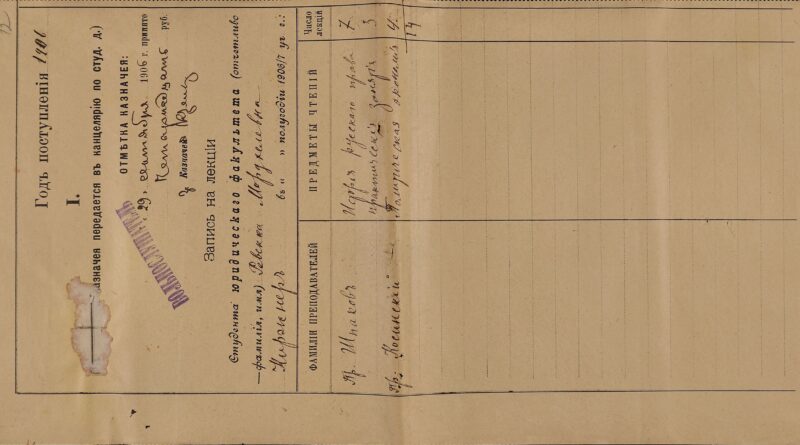 12
Годъ поступленія 1906
I.
азначея передается въ канцелярію по студ. д.)
ОТМѢТКА КАЗНАЧЕЯ:
29, сентября 1906 г. принято
Четырнадцать руб.
Казначей
ВОЛЬНОСЛУШАТЕЛЬ
Запись на лекціи
Студента юридическаго факультета (отчетливо
—фамилія, имя) Ревекка Мордхелевна
въ „ „ полугодіи 1906/7 уч. г.:
ФАМИЛІИ ПРЕПОДАВАТЕЛЕЙ ПРЕДМЕТЫ ЧТЕНІЙ Число лекцій
Пр. Шпаковъ Исторія русскаго права 7
практическія занятія 3
Пр. Косинскій Политическая экономія 4
14